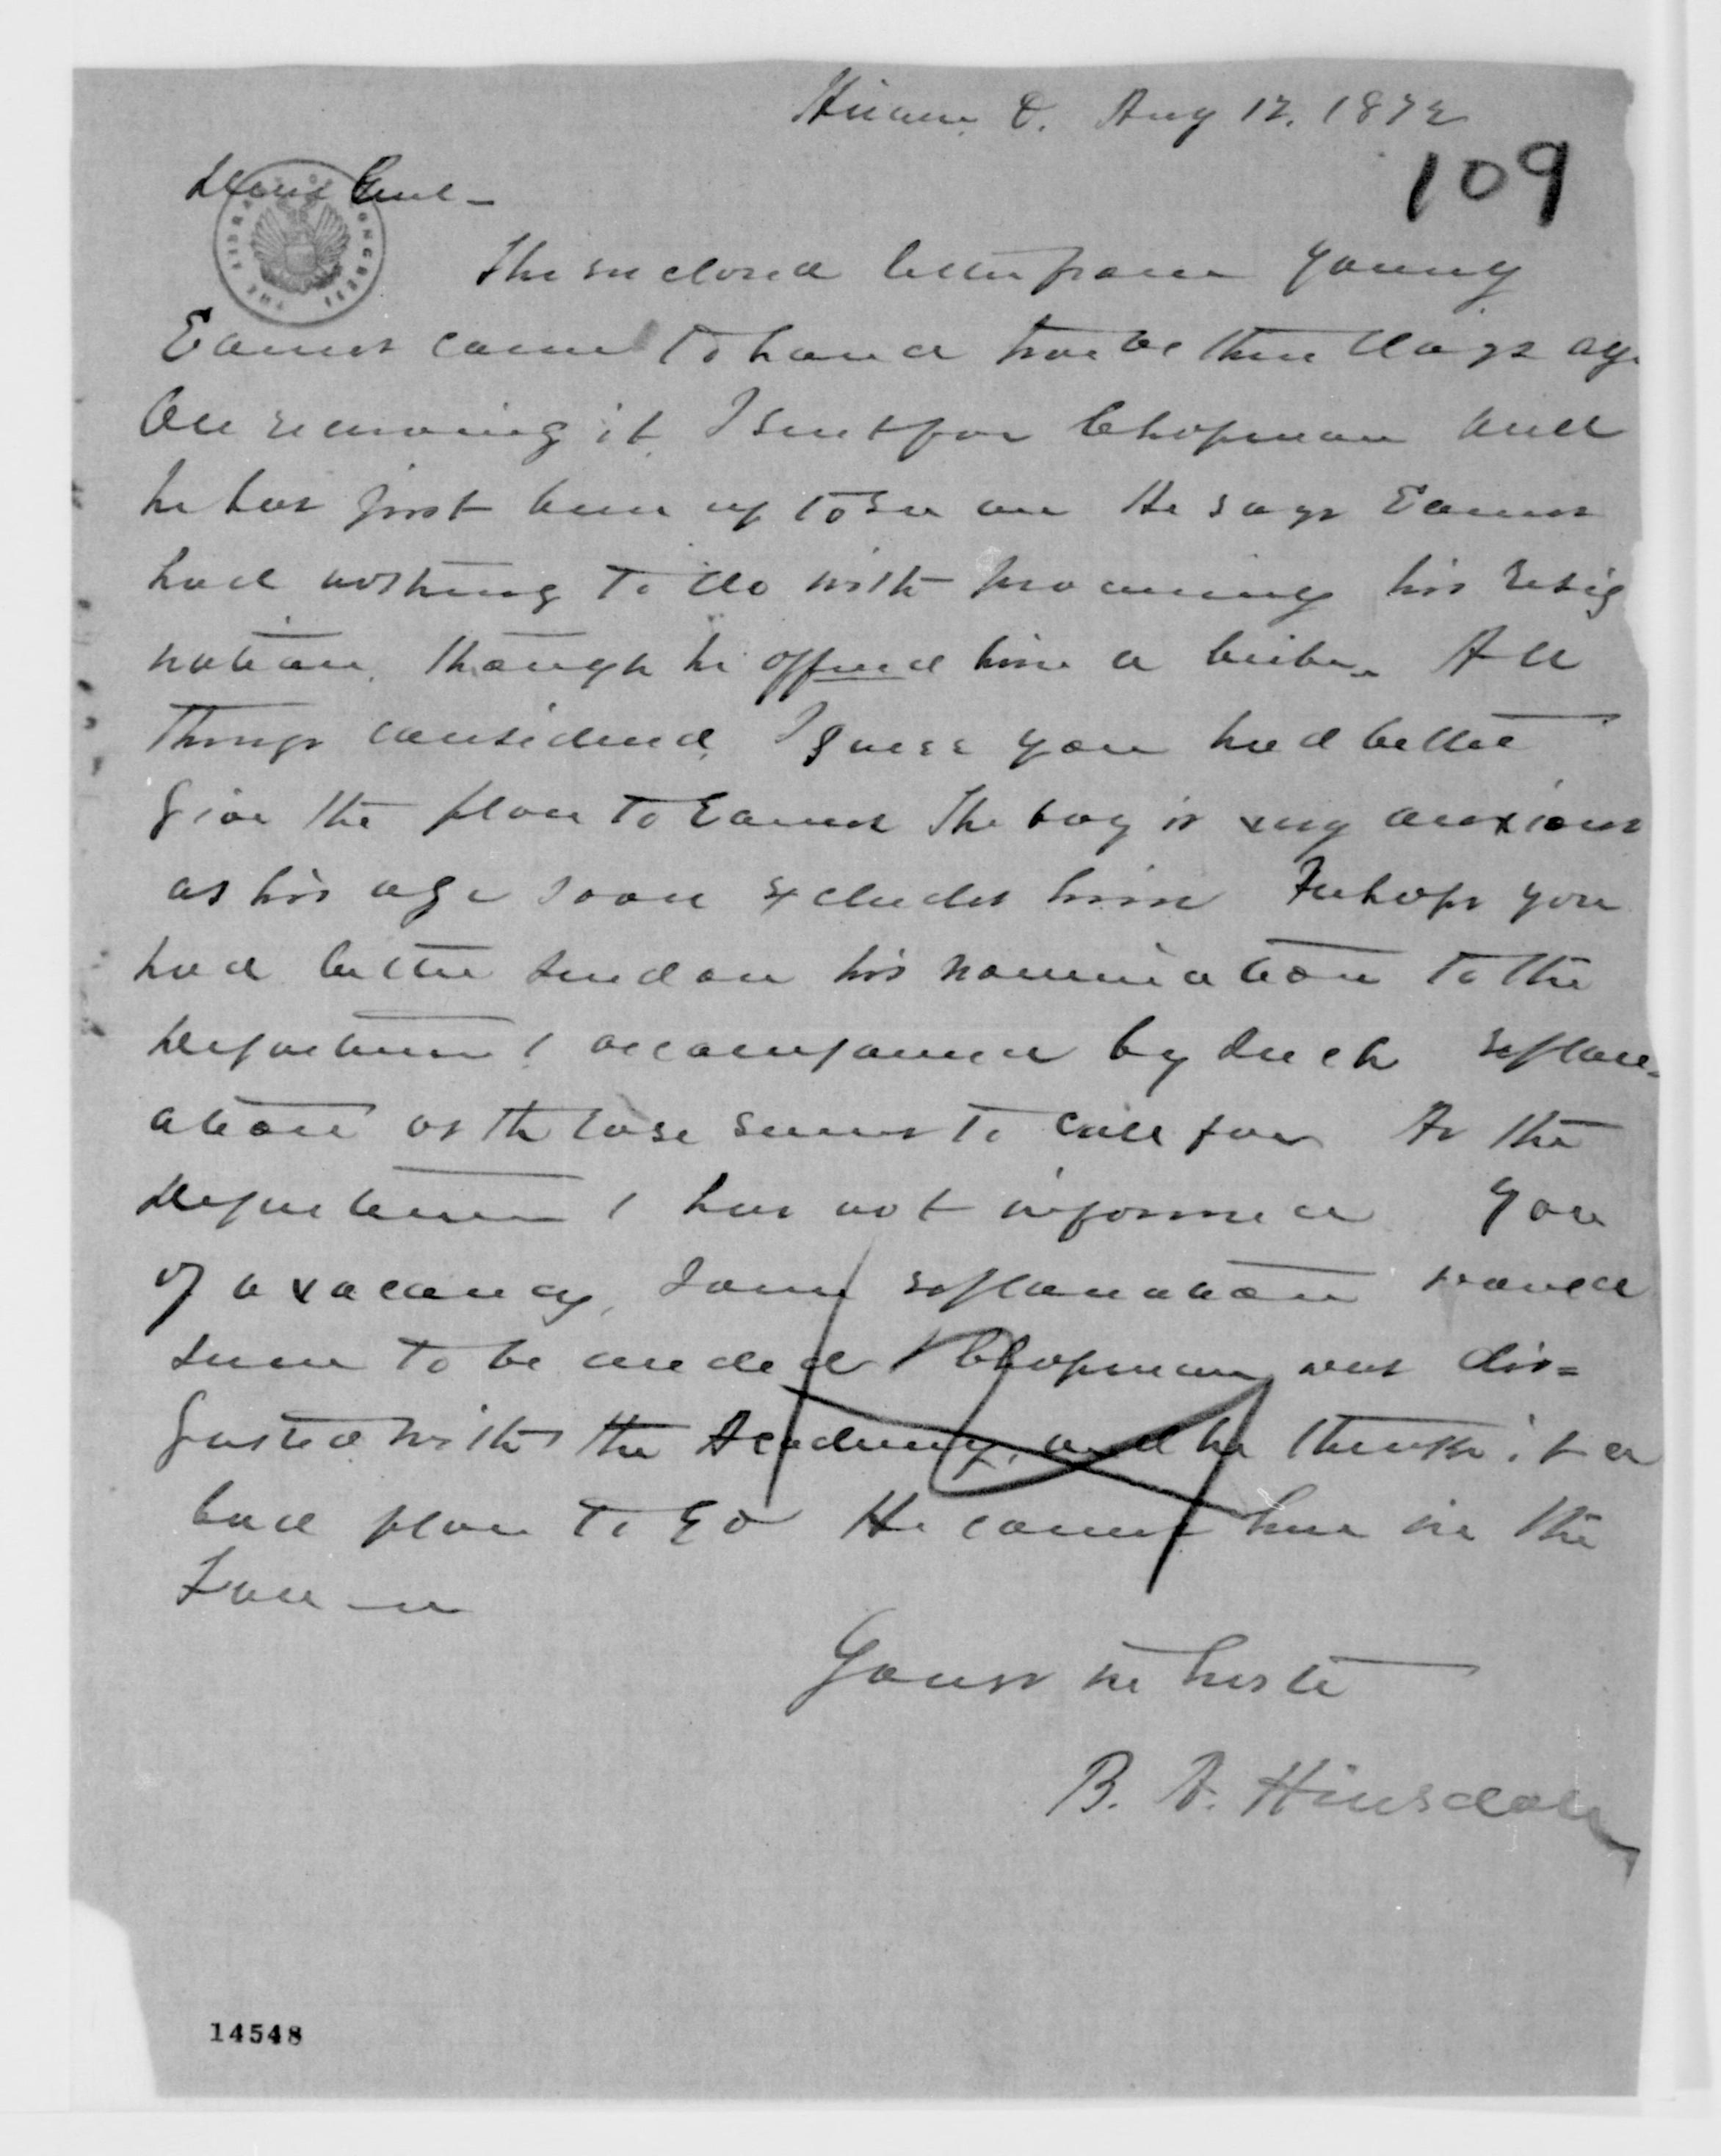 Hiram, O. Aug 12, 1872
109
Dear Genl –
The enclosed letter from young
Eames came to hand two or three days ago
On receiving it, I sent for Chapman and
he has just been up to see me He says Eames
had nothing to do with procuring his resig
nation, though he offered him a bribe. All
things considered, I guess you had better
give the place to Eames The boy is very anxious
as his age soon excludes him Perhaps you
had better send on his nomination to the
Department accompanied by such explan-
ation as the case seems to call for As the
Department has not informed you
of a vacancy, some explanation would
seem to be needed Chapman was dis=
gusted with the Academy, and he thinks it a
bad place to go He comes here in the
Fall
Yours in haste
B. A. Hinsdale
14548